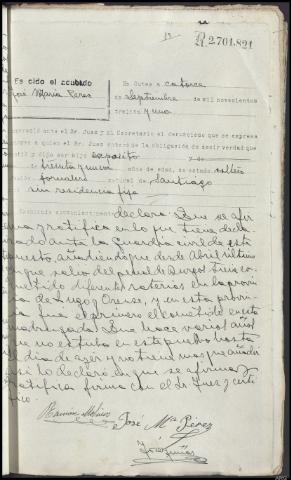 12
R.2.701.821
Es oido el acusado
José María Perez
En Outes a catorce
de Septiembre de mil novecientos
treinta y uno
compareció ante el Sr. Juez y mi Secretario el denunciado que se expresa
a quien el Sr. Juez enteró de la obligación de decir verdad
y dijo ser hijo expósito y de
de treinta y nueve años de edad, de estado soltero
jornalero natural de Santiago
sin residencia fija
declara: Que se afir
ma y ratifica en lo que tiene decla
rado ante la Guardia civil de este
puesto, añadiendo que desde Abril último
en que salio del penal de Burgos tiene co
metido diferentes raterias en la provin
cia de Lugo y Orense, y en esta provin
cia fué el primero el cometido en esta
madrugada. Que hace varios años
que no estubo en este pueblo hasta
el dia de ayer y no tiene mas que añadir
asi lo declaró en que se afirma y
ratifica firma con el Sr. Juez y certi
fico.
José Mª Pérez